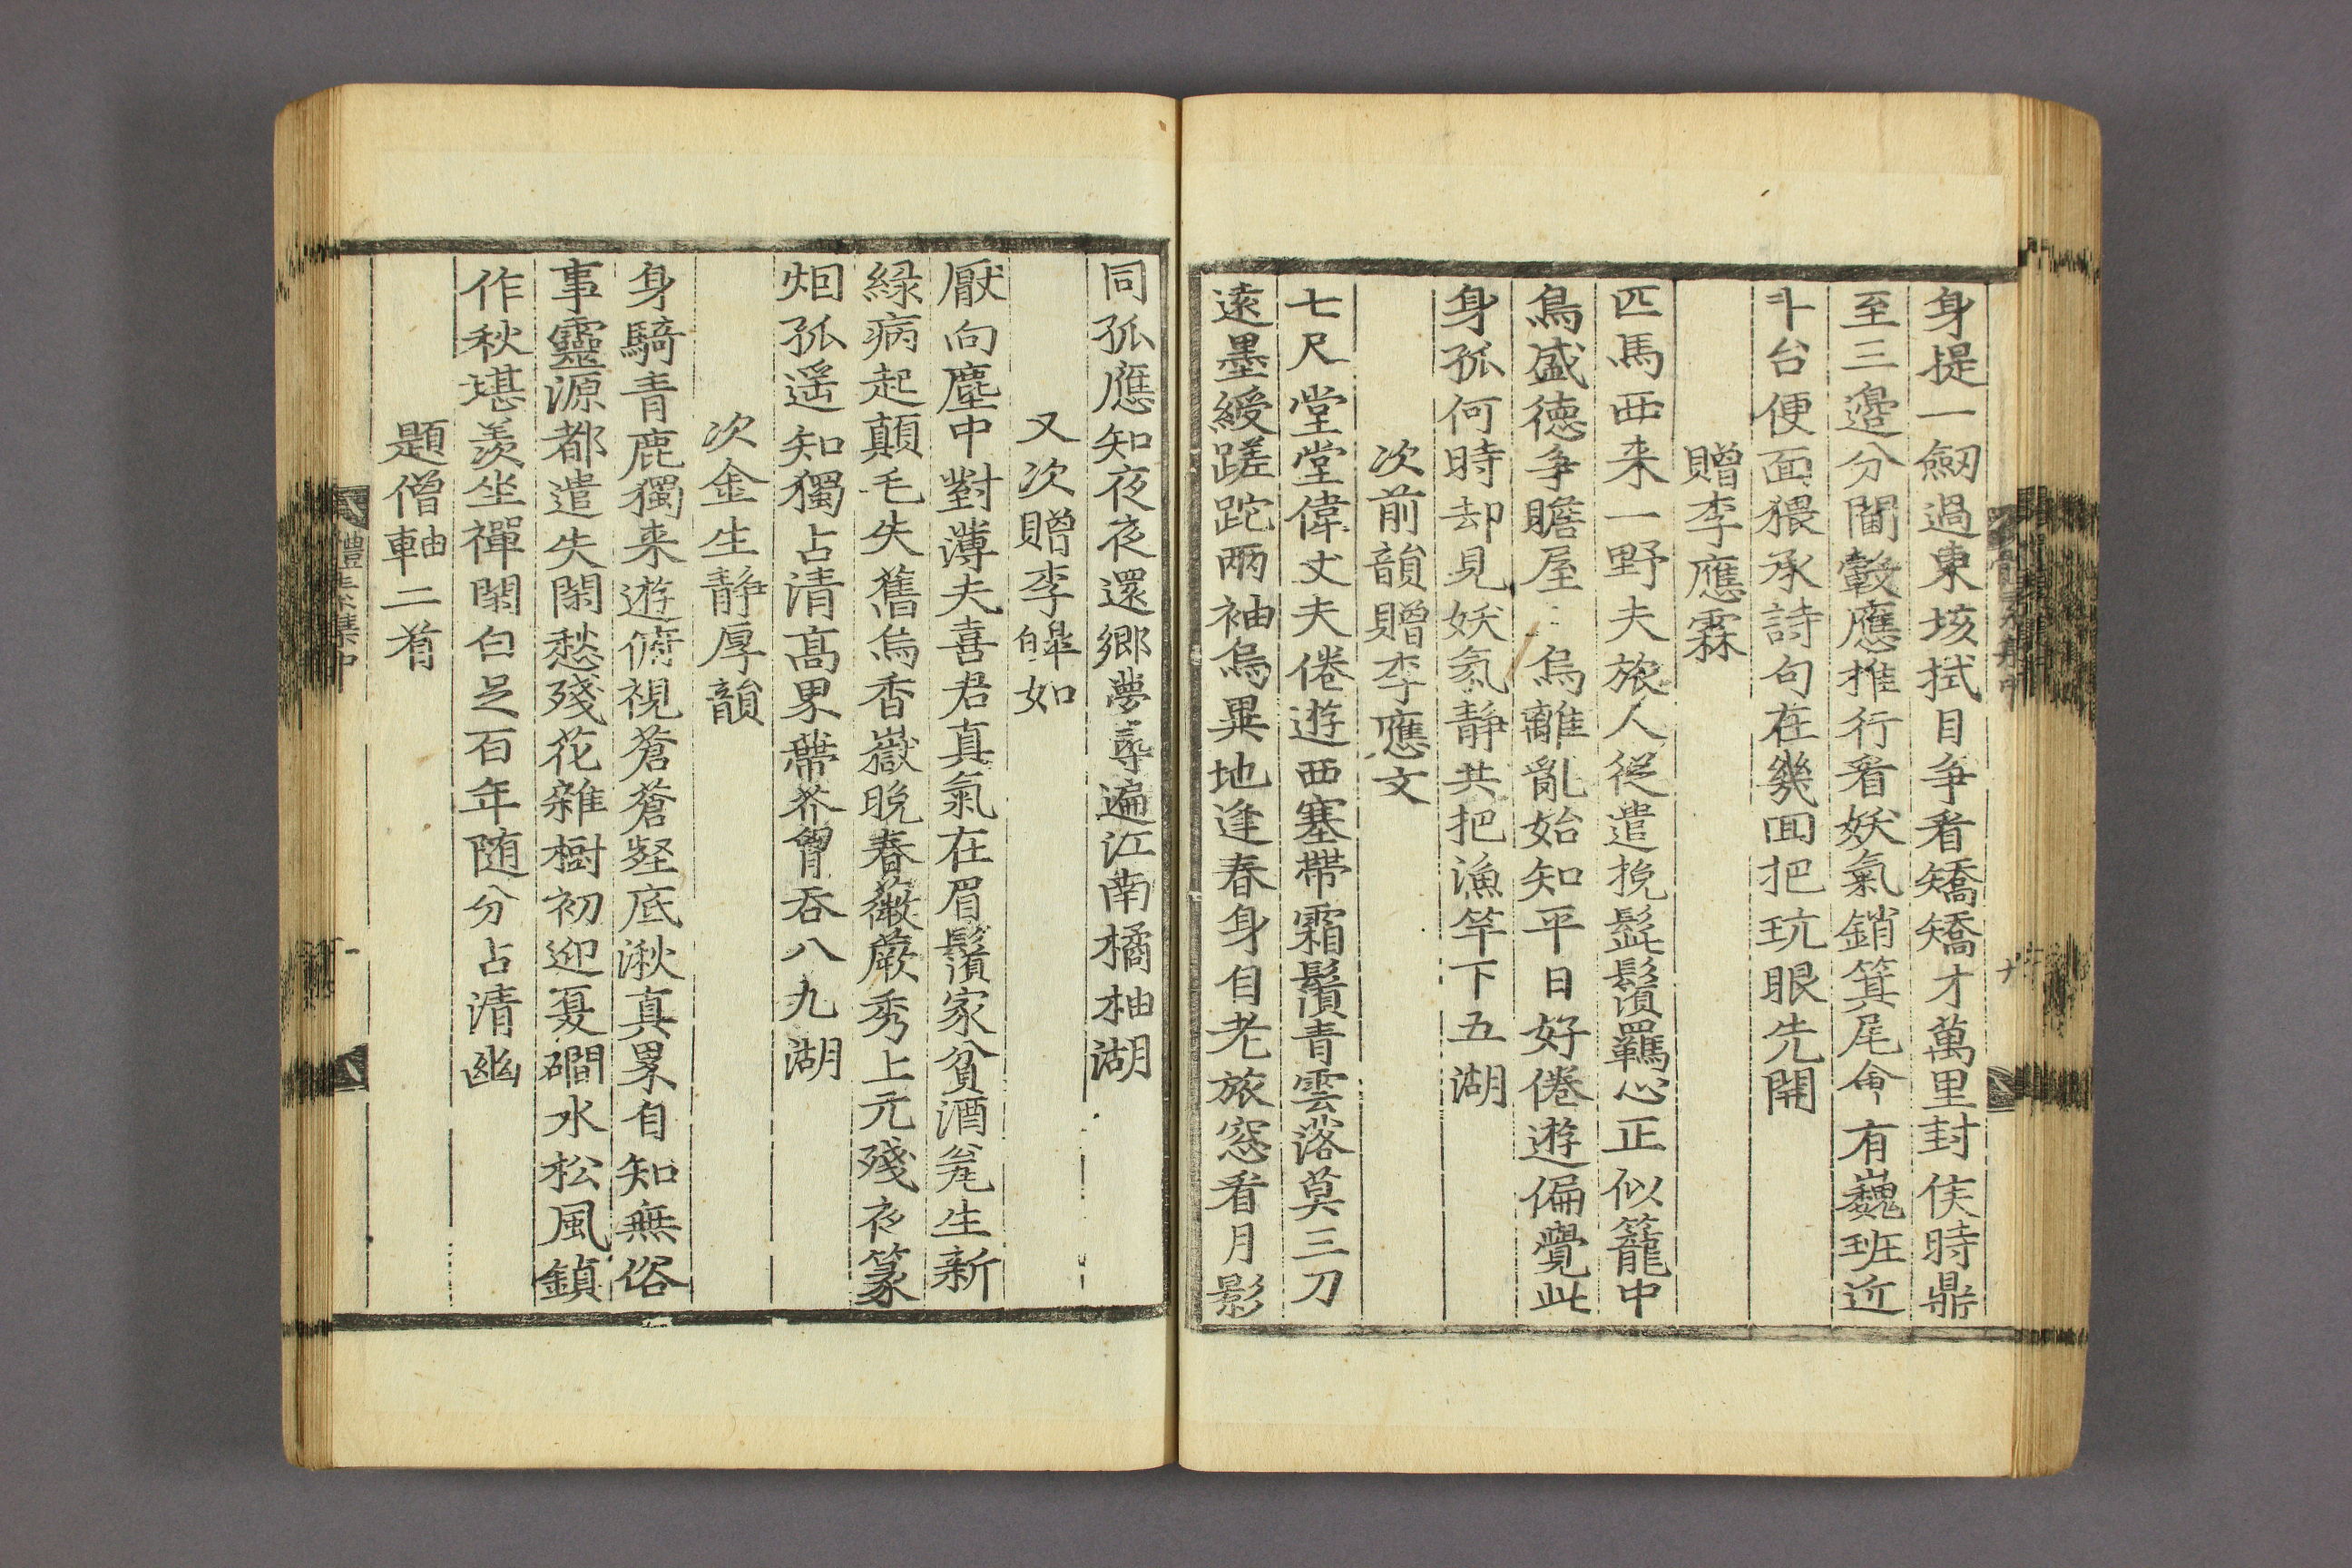 身提一劒過東垓拭目爭看矯矯才萬里封侯時鼎
至三邊分閫轂應推行看妖氣銷箕尾會有巍班近
斗台便面猥承詩句在幾回把玩眼先開
贈李應霖
匹馬西来一野夫旅人從遣挽髭鬚羈心正似籠中
鳥盛德爭瞻屋烏離亂始知平日好倦遊偏覺此
身孤何時却見妖氛靜共把漁竿下五湖
次前韻贈李應文
七尺堂堂偉丈夫倦遊西塞帶霜鬚青雲落莫三刀
遠墨綬蹉跎兩袖烏異地逢春身自老旅窓看月影
同孤應知夜夜還鄉夢尋遍江南橘柚湖
又次贈李皥如
厭向塵中對薄夫喜君真氣在眉鬚家貧酒瓮生新
綠病起顛毛失舊烏香嶽晚春薇蕨秀上元殘夜篆
烟孤遥知獨占清高界蔕芥胷吞八九湖
次金生靜厚韻
身騎青鹿獨来遊俯視蒼蒼壑底湫真界自知無俗
事靈源都遣失閑愁殘花雜樹初迎夏磵水松風鎮
作秋堪羡坐禪閑白足百年随分占清幽
題僧軸二首